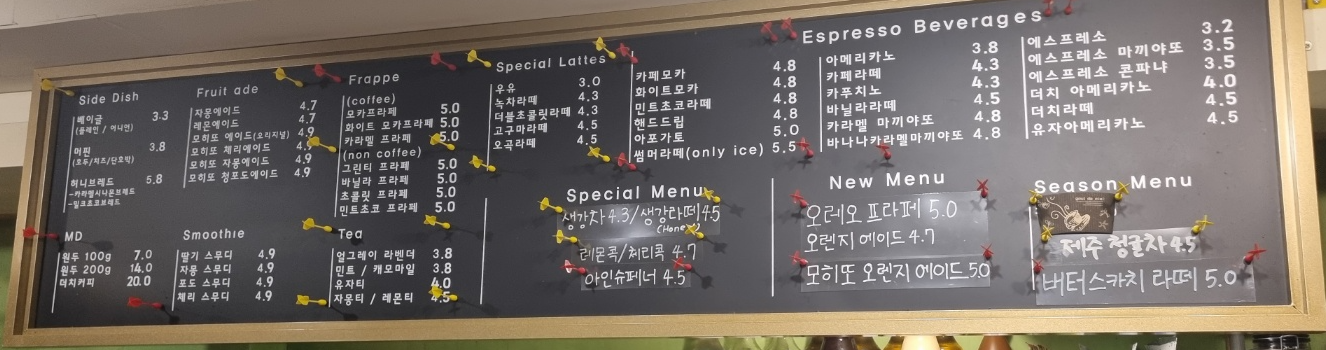 Side Dish
베이글 3.3
(플레인 / 어니언)
머핀 3.8
(호두/치즈/단호박)
허니브레드 5.8
-카라멜시나몬브레드
-밀크초코브레드
MD
원두 100g 7.0
원두 200g 14.0
더치커피 20.0
Fruit ade
자몽에이드 4.7
레몬에이드 4.7
모히또 에이드(오리지널) 4.9
모히또 체리에이드 4.9
모히또 자몽에이드 4.9
모히또 청포도에이드 4.9
Smoothie
딸기 스무디 4.9
자몽 스무디 4.9
포도 스무디 4.9
체리 스무디 4.9
Frappe
(coffee)
모카프라페 5.0
화이트 모카프라페 5.0
카라멜 프라페 5.0
(non coffee)
그린티 프라페 5.0
바닐라 프라페 5.0
초콜릿 프라페 5.0
민트초코 프라페 5.0
Tea
얼그레이 라벤더 3.8
민트 / 캐모마일 3.8
유자티 4.0
자몽티 / 레몬티 4.5
Special Lattes
우유 3.0
녹차라떼 4.3
더블초콜릿라떼 4.3
고구마라떼 4.5
오곡라떼 4.5
Espresso Beverages
카페모카 4.8
화이트모카 4.8
민트초코라떼 4.8
핸드드립 4.8
아포가토 5.0
썸머라떼(only ice) 5.5
아메리카노 3.8
카페라떼 4.3
카푸치노 4.3
바닐라라떼 4.5
카라멜 마끼야또 4.8
바나나카라멜마끼야또 4.8
에스프레소 3.2
에스프레소 마끼야또 3.5
에스프레소 콘파냐 3.5
더치 아메리카노 4.0
더치라떼 4.5
유자아메리카노 4.5
Special Menu
생강차 4.3/생강라떼 4.5
(Honey)
레몬콕/체리콕 4.7
아인슈페너 4.5
New Menu
오레오 프라페 5.0
오렌지 에이드 4.7
모히또 오렌지 에이드 5.0
Season Menu
제주 청귤차 4.5
버터스카치 라떼 5.0